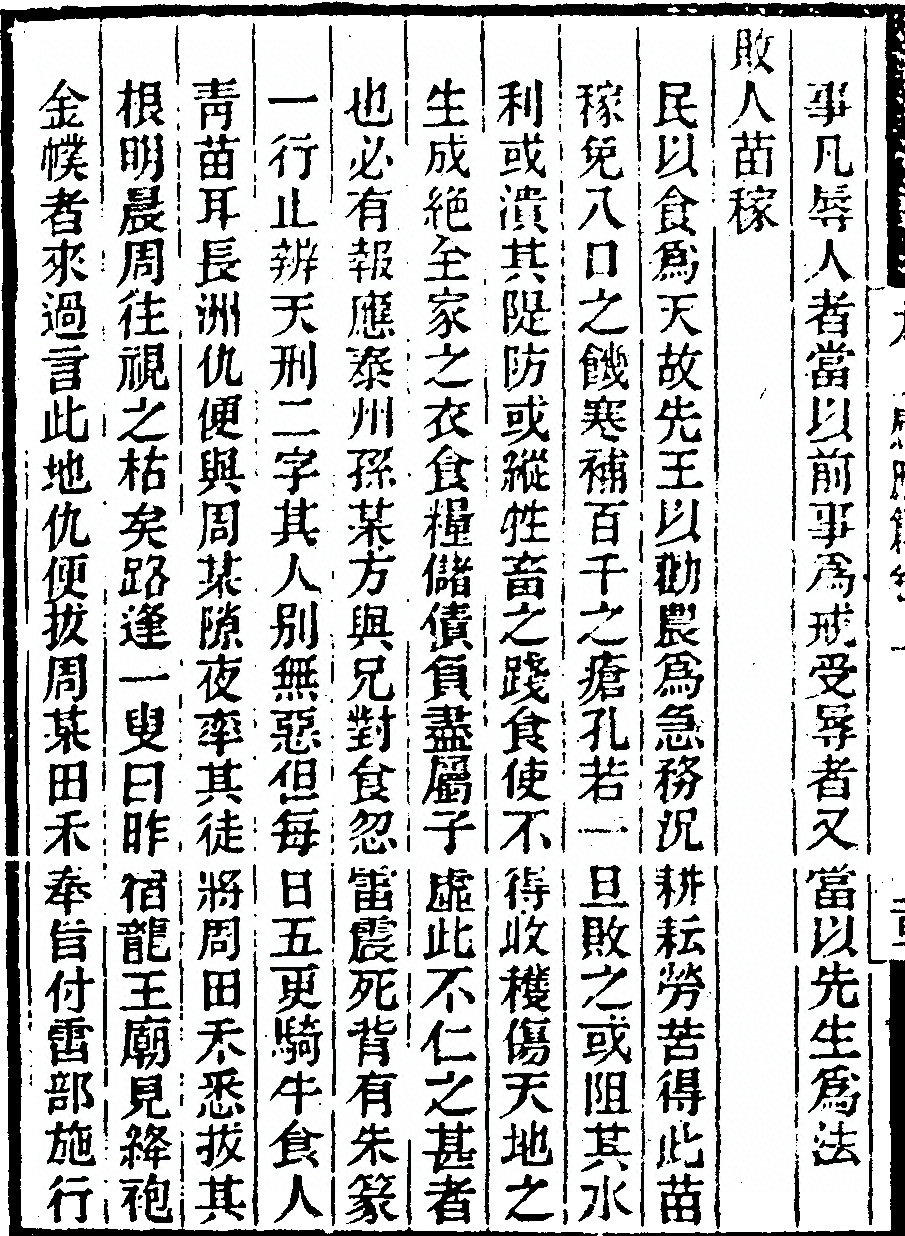 事凡辱人者當以前事爲戒受辱者又當以先生爲法
敗人苗稼
民以食爲天故先王以勸農爲急務況耕耘勞苦得此苗
稼免八口之饑寒補百千之瘡孔若一旦敗之或阻其水
利或潰其隄防或縱牲畜之踐食使不得收穫傷天地之
生成絶全家之衣食糧儲債負盡屬子虛此不仁之甚者
也必有報應泰州孫某方與兄對食忽雷震死背有朱篆
一行止辨天刑二字其人别無惡但每日五更騎牛食人
靑苗耳長洲仇便與周某隙夜率其徒將周田禾悉拔其
根明晨周往視之枯矣路逢一叟曰昨宿龍王廟見絳袍
金幞者來過言此地仇便拔周某田禾奉旨付雷部施行